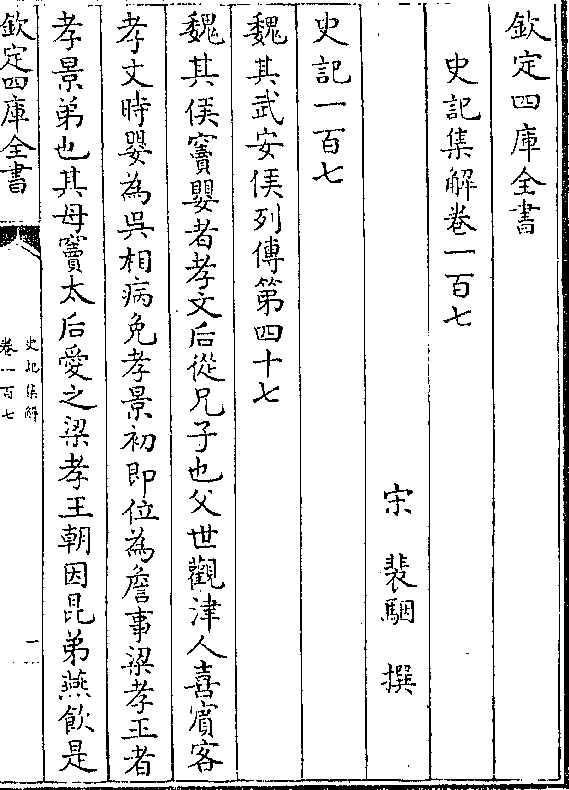 欽定四庫全書
史記集解卷一百七
宋　裴駰　撰
史記一百七
魏其武安侯列傳第四十七
魏其侯竇嬰者孝文后從兄子也父世觀津人喜賓客
孝文時嬰為吳相病免孝景初即位為詹事梁孝王者
孝景弟也其母竇太后愛之梁孝王朝因昆弟燕飲是
欽定四庫全書
史記集解
卷一百七
一